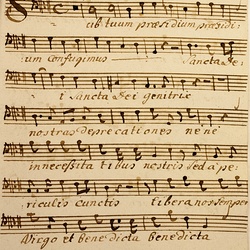 Sub tuum præsidium præsidi:
um Confugimus Sancta De:
i Sancta Dei genitrix
nostras deprecationes ne ne
in necessita tibus nostris sed a pe:
riculis cunctis libera nos semper
Virgo et benedicta benedicta